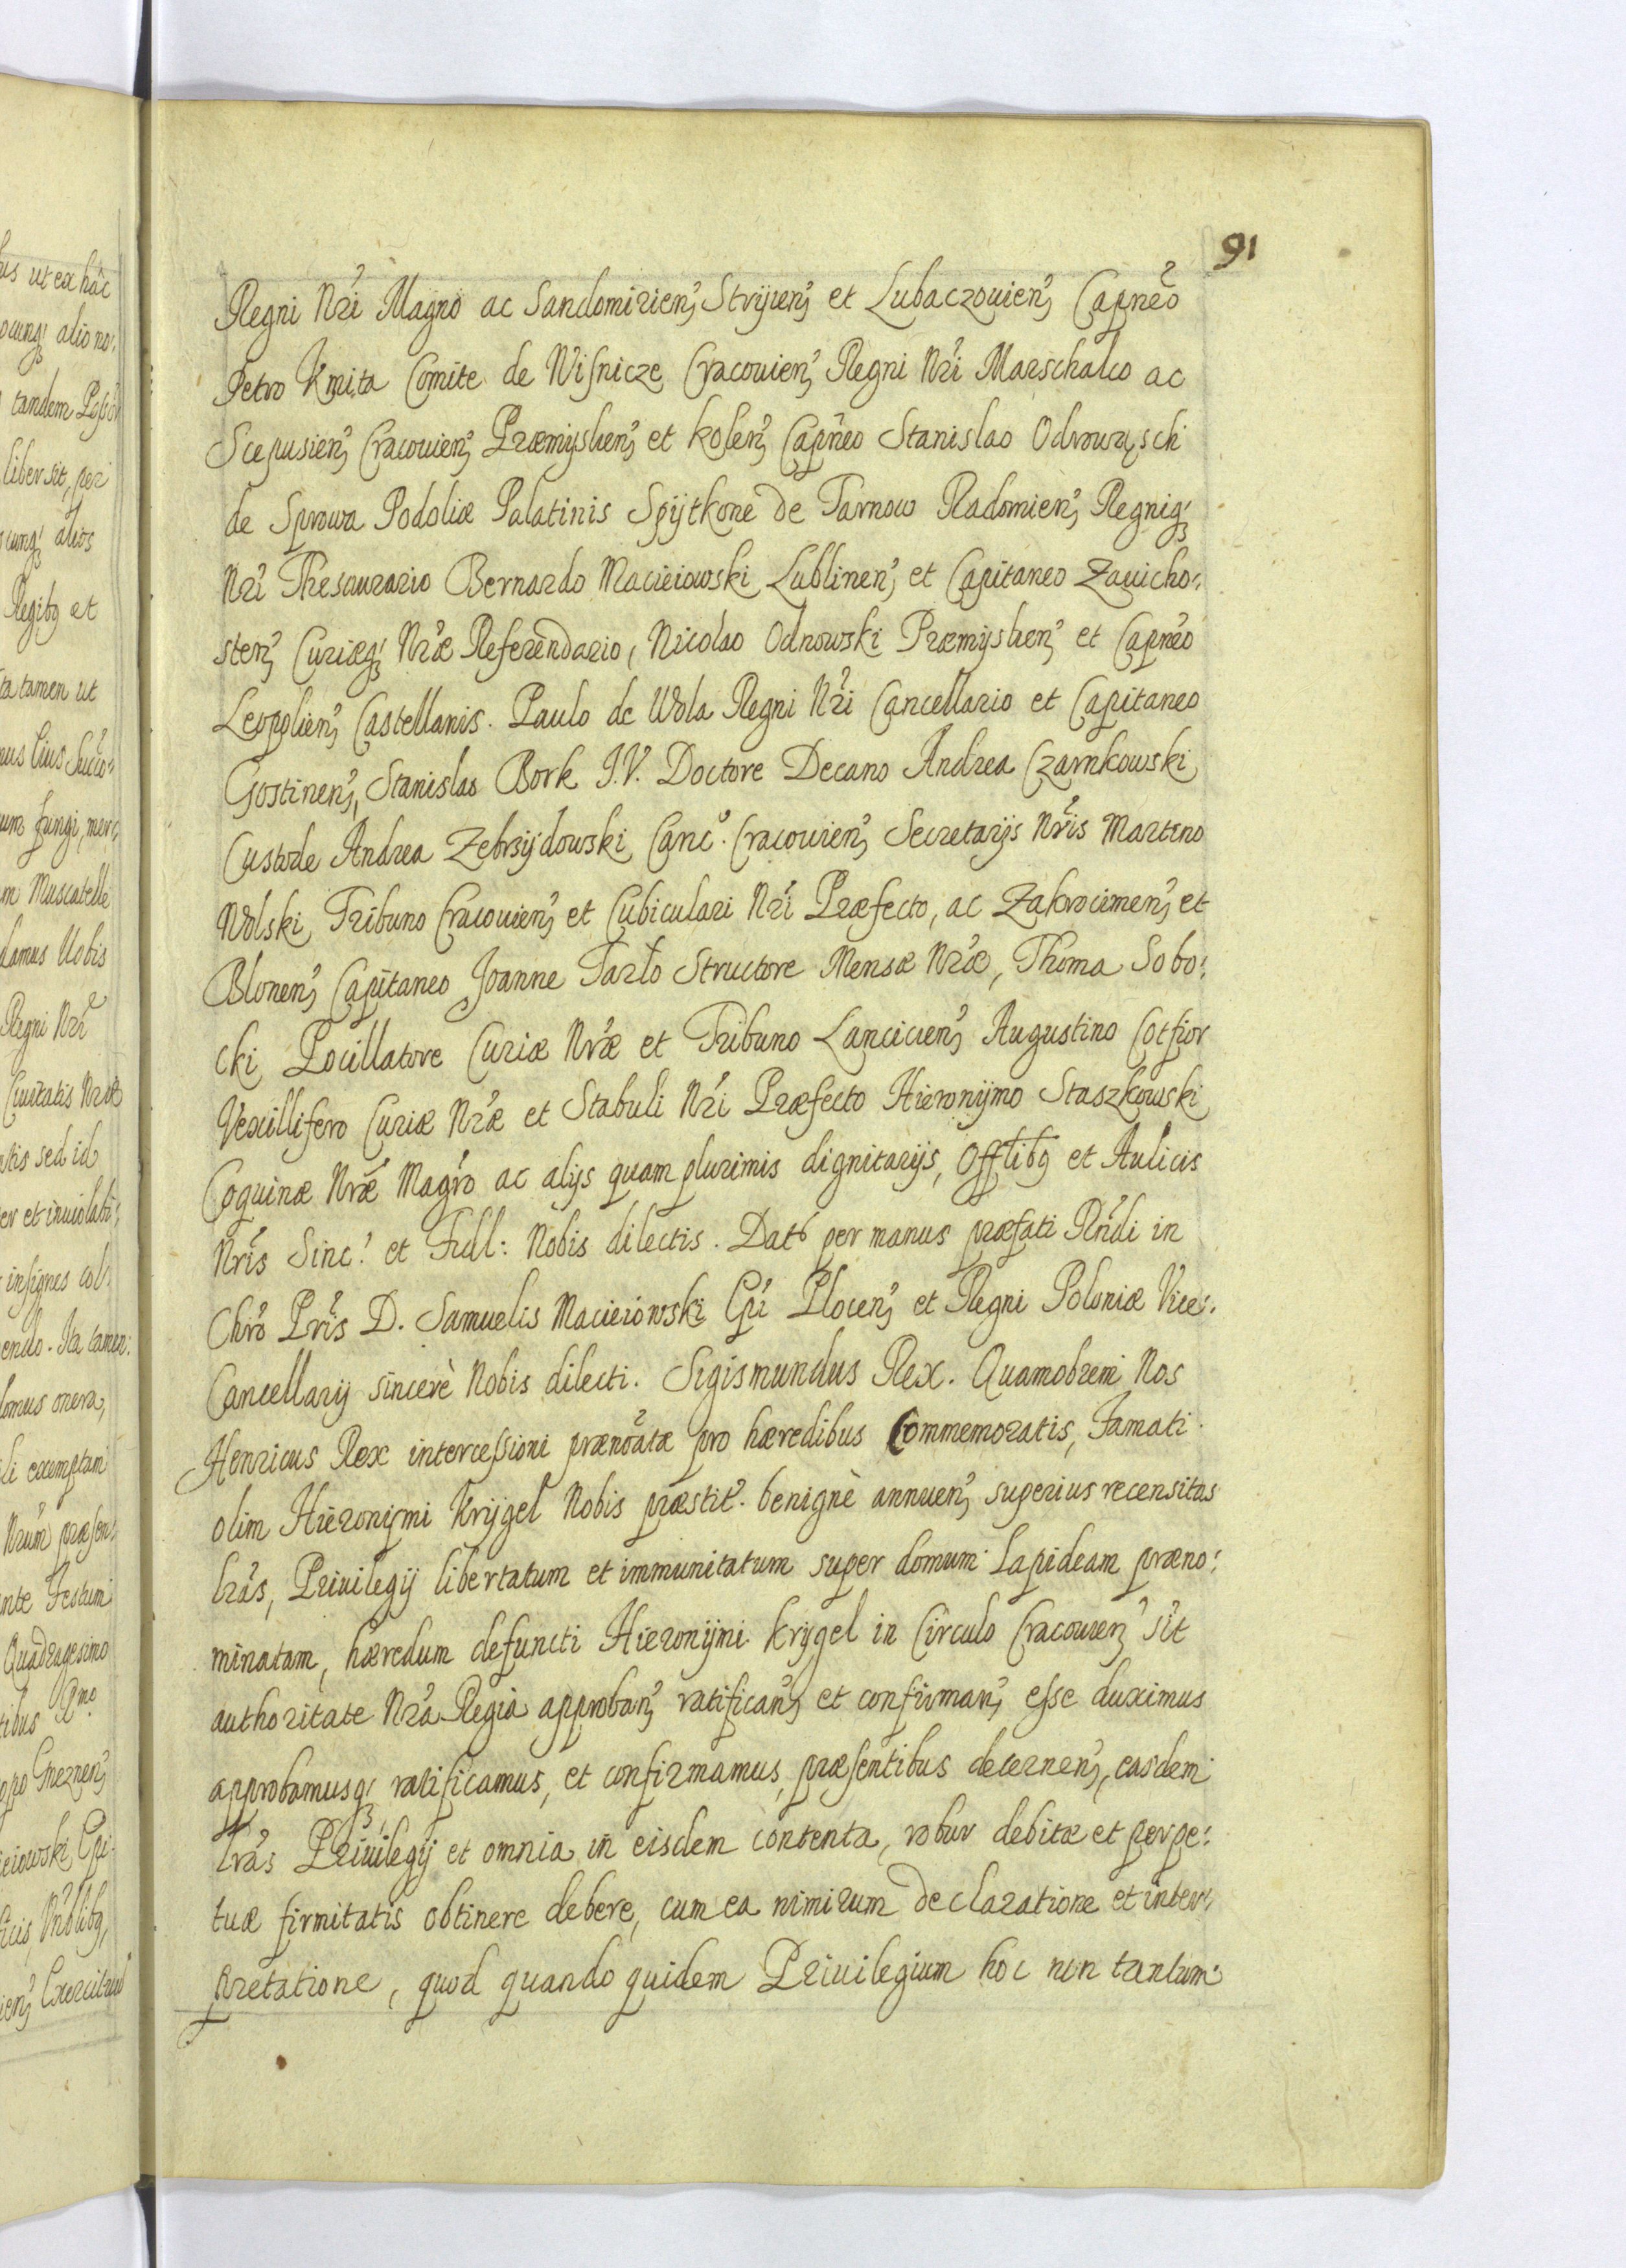 91
Regni Nri Magno ac Sandomirien, Stryien, et Lubaczouien, Capneo
Petro Kmita Comite de Wisnicze Cracouien, Regni Nri Marschalco ac
Scepusien, Cracouien, Præmyslien, et Kolen, Capneo Stanislao Odrowąsch
de Sprowa Podoliæ Palatinis Spytkone de Tarnow Radomien, Regniq;
Nri Thesaurario Bernardo Macieiowski Lublinen, et Capitaneo Zauicho:
sten, Curiæq; Nræ Referendario, Nicolao Odnowski Præmyslien, et Capneo
Leopolien, Castellanis. Paulo de Wola Regni Nri Cancellario et Capitaneo
Gostinen, Stanislao Bork J.V. Doctore Decano Andrea Czarnkowski
Custode Andrea Zebrzydowski Canc. Cracouien, Secretarijs Nris Martino
Wolski Tribuno Cracouien, et Cubiculari Nri Præfecto, ac Zakrocimen, et
Blonen, Capitaneo Joanne Tarlo Structore Mensæ Nræ, Thoma Sobo:
cki Pocillatore Curiæ Nræ et Tribuno Lancicien, Augustino Cotfior
Vexillifero Curiæ Nræ et Stabuli Nri Præfecto Hieronymo Staszkowski
Coquinæ Nræ Magro ac alijs quam plurimis dignitarijs, Offlibq et Aulicis
Nris Sinc. et Fidl: Nobis dilectis. Dat per manus præfati Rndi in
Chro Pris D. Samuelis Macieiowski Epi Plocen, et Regni Poloniæ Vice:
Cancellarij sincerè Nobis dilecti. Sigismundus Rex. Quamobrem Nos
Henricus Rex intercessioni prænoatæ pro hæredibus Commemoratis, Famati
olim Hieronymi Krygel Nobis præstit. benignè annuen, superius recensitas
lras, Priuilegij libertatum et immunitatum super domum Lapideam præno:
minatam, hæredum defuncti Hieronymi Krygel in Circulo Cracouien sit
authoritate Nra Regia approban, ratifican, et confirman, esse duximus
approbamusq; ratificamus, et confirmamus, præsentibus decernen, easdem
lras Priuilegij et omnia in eisdem contenta, robur debitæ et perpe:
tuæ firmitatis obtinere debere, cum ea nimirum declaratione et inter:
pretatione, quod quando quidem Priuilegium hoc non tantum